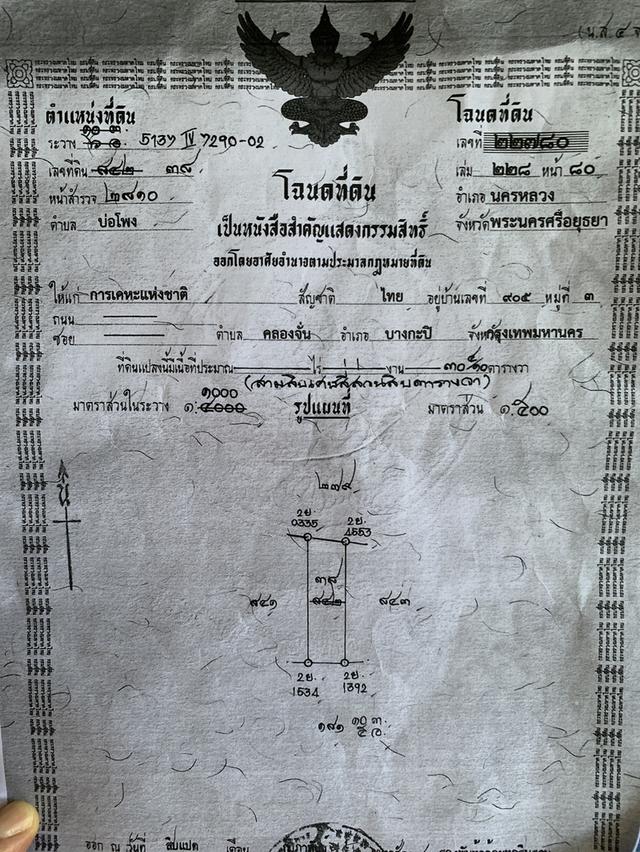 (น.ส. ๔ จ
ตำแหน่งที่ดิน
ระวาง 5137 IV 7290-02
เลขที่ดิน ๘๔๒ ๓๘
หน้าสำรวจ ๒๘๑๐
ตำบล บ่อโพง
โฉนดที่ดิน
เลขที่ ๒๒๗๘๐
เล่ม ๒๒๘ หน้า ๘๐
อำเภอ นครหลวง
จังหวัด พระนครศรีอยุธยา
โฉนดที่ดิน
เป็นหนังสือสำคัญแสดงกรรมสิทธิ์
ออกโดยอาศัยอำนาจตามประมวลกฎหมายที่ดิน
ให้แก่ การเคหะแห่งชาติ สัญชาติ ไทย อยู่บ้านเลขที่ ๙๐๕ หมู่ที่ ๓
ถนน
ซอย ตำบล คลองจั่น อำเภอ บางกะปิ จังหวัด กรุงเทพมหานคร
ที่ดินแปลงนี้มีเนื้อที่ประมาณ ไร่ งาน ตารางวา
มาตราส่วนในระวาง ๑: ๔๐๐๐ ๑๐๐๐ รูปแผนที่ มาตราส่วน ๑: ๕๐๐
๒๗๙
2ย. 2ย.
0335 4553
๓๘
๘๔๑ ๘๔๒ ๘๔๓
2ย. 2ย.
1534 1392
๑๘๑
ออก ณ วันที่ สิบแปด เดือน